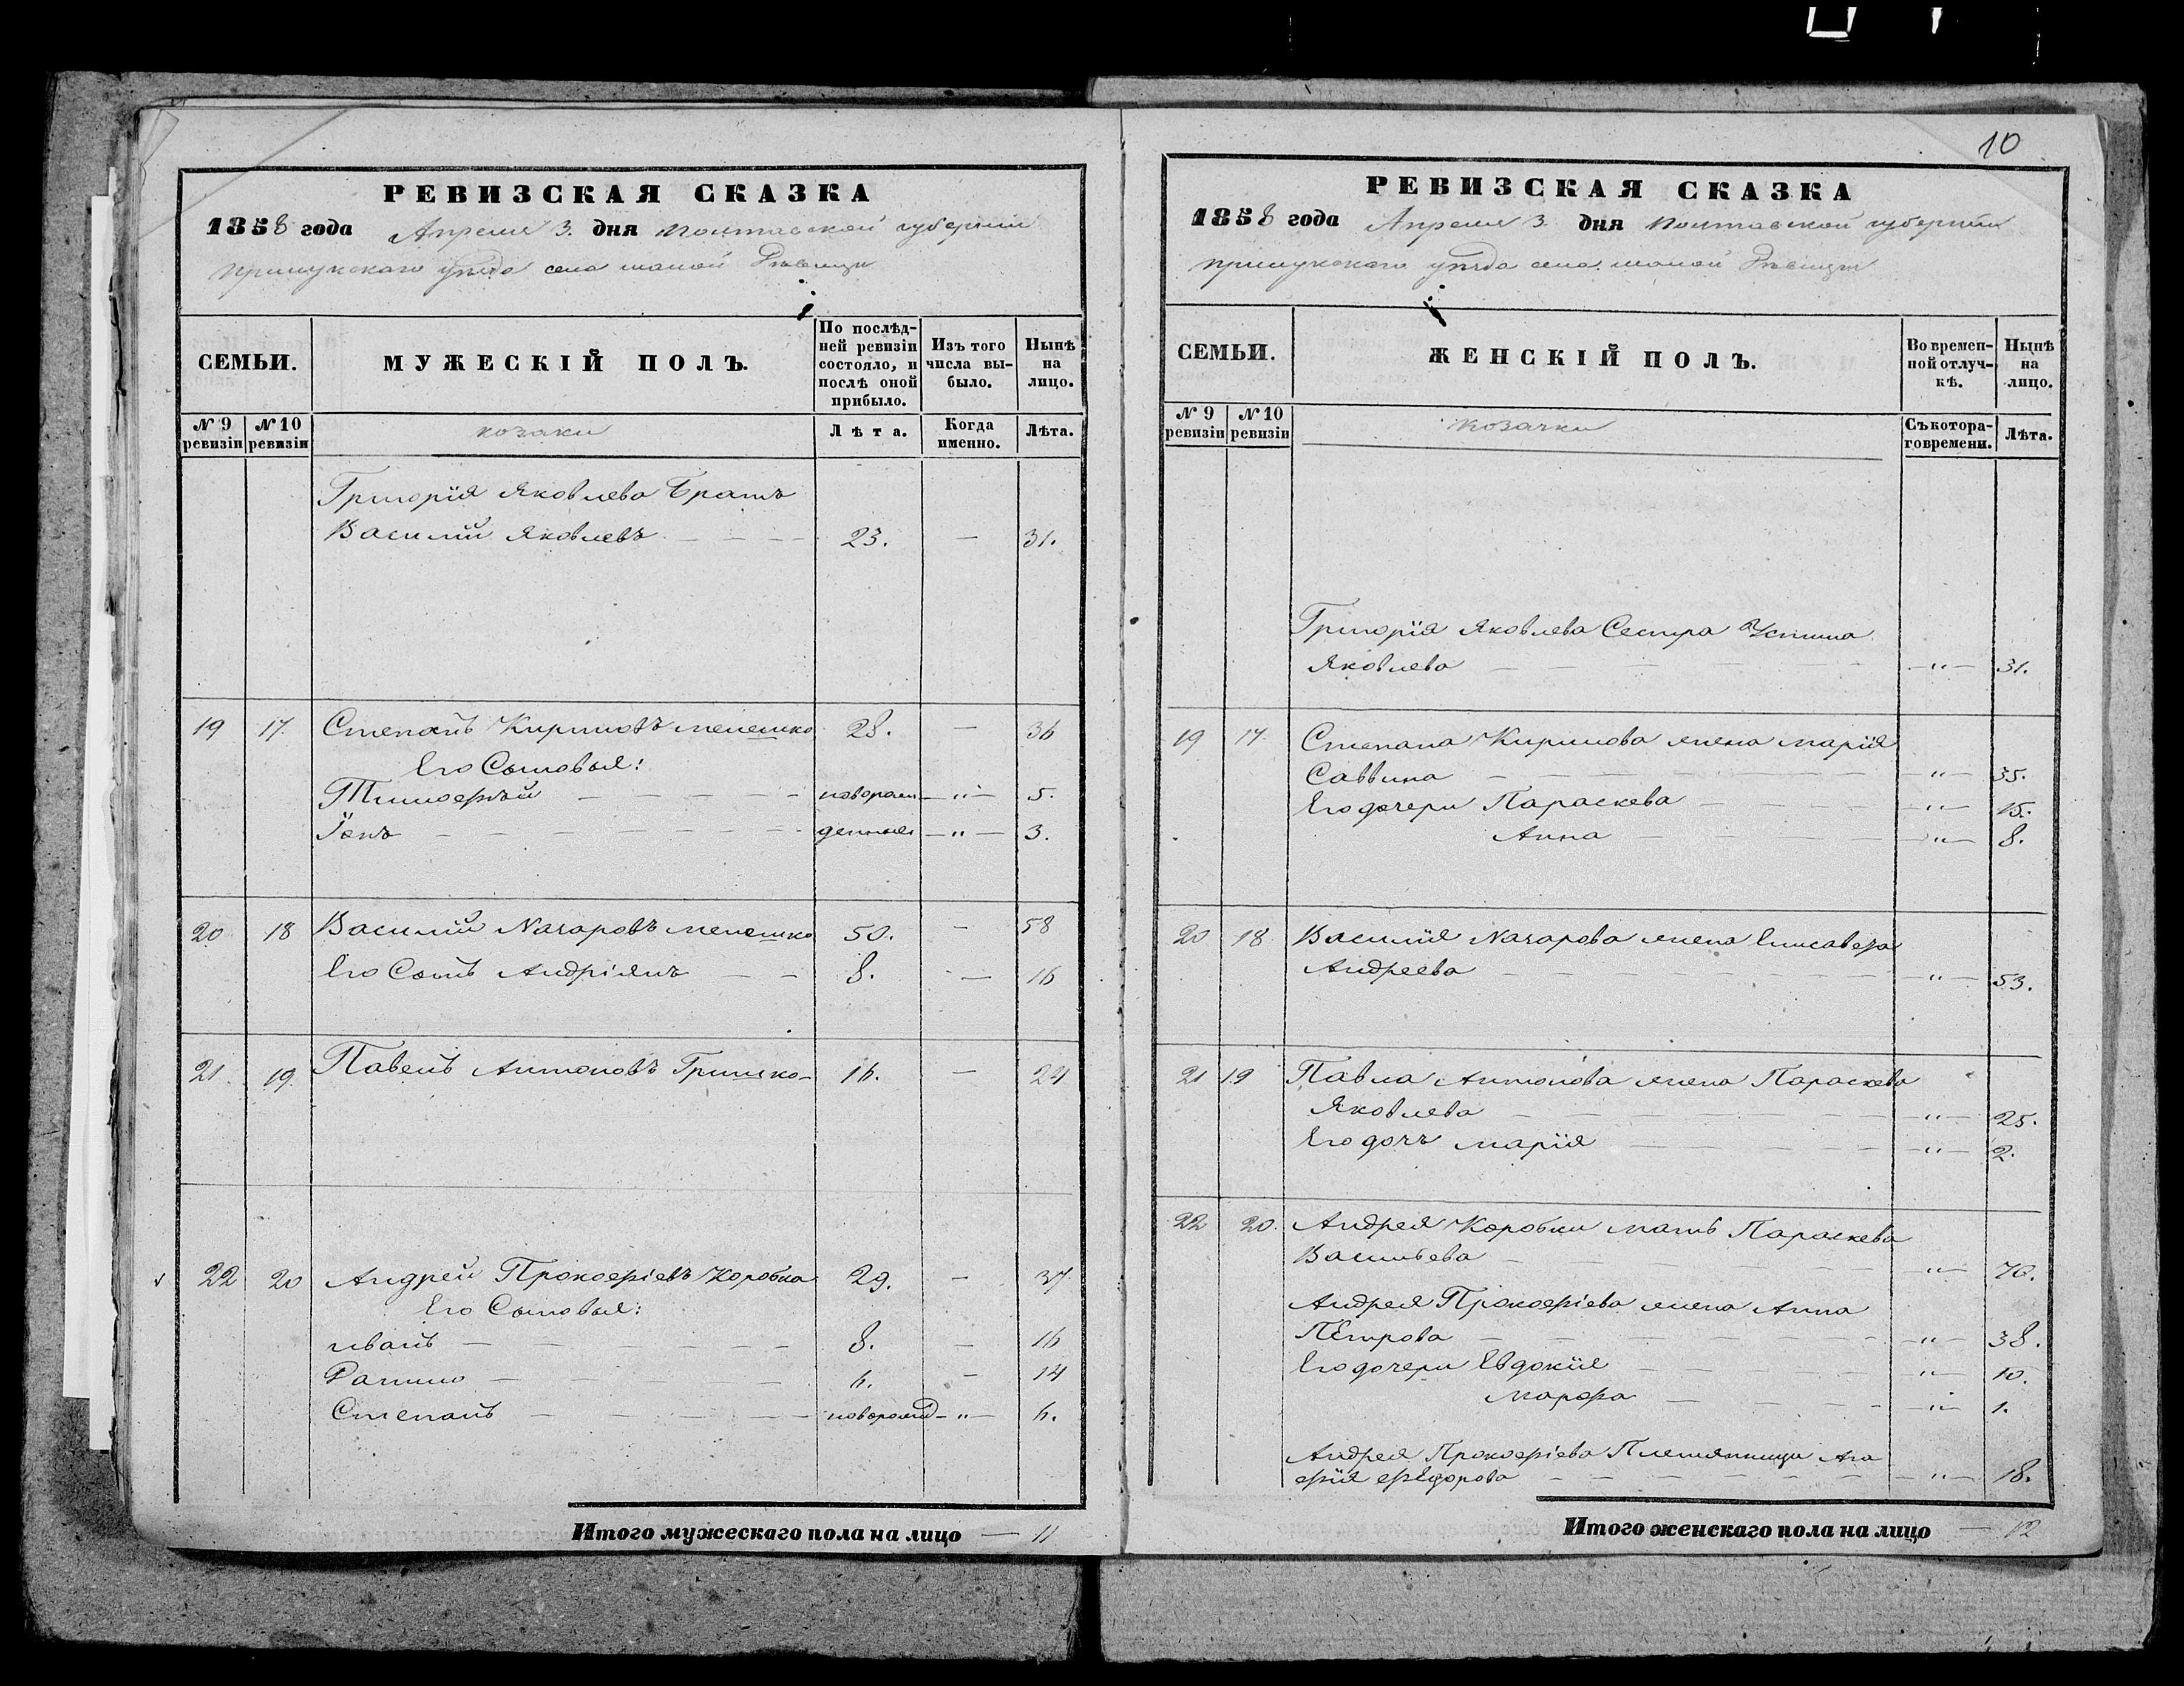 РЕВИЗСКАЯ СКАЗКА
1858 года Апреля 3. дня Полтавской губерніи
прилукского уѣзда села малой Дѣвицы
СЕМЬИ.
МУЖЕСКІЙ ПОЛЪ.
По послѣд-
ней ревизіи
состояло, и
послѣ оной
прибыло.
Изъ того
числа вы-
было.
Нынѣ
на
лицо.
№ 9
ревизіи
№ 10
ревизіи
козаки
Лѣта.
Когда
именно.
Лѣта.
Григорія Яковлева Братъ
Василій Яковлевъ - - - 23. — 31.
19 17. Степанъ Кириловъ мелешко 28. — 36
Его Сыновья:
Тимоѳѣй - - - - - новорож — „ — 5.
Іонъ - - - - - - денныя — „ — 3.
20 18 Василій Назаровъ мелешко 50. — 58
Его Сынъ Андріянъ - - 8. — 16
21. 19. Павелъ Антоновъ Гришко - 16. — 24
22 20 Андрей Прокофіевъ Коробка 29. — 37
Его Сыновья:
иванъ - - - - - 8. — 16
Данило - - - - - 6. — 14
Степанъ - - - - - новорожд — „ — 6.
Итого мужескаго пола на лицо — 11
10
РЕВИЗСКАЯ СКАЗКА
1858 года Апреля 3. дня Полтавской губерніи
прилукского уѣзда села малой Дѣвицы
СЕМЬИ.
ЖЕНСКІЙ ПОЛЪ.
Во времен-
ной отлуч-
кѣ.
Нынѣ
на
лицо.
№ 9
ревизіи
№ 10
ревизіи
козачки
Съ котора-
го времени.
Лѣта.
Григорія Яковлева Сестра Устина
Яковлева - - - - - — „ — 31.
19 17 Степана Кирилова жена марія
Саввина - - - - - — „ — 35.
Его дочери Параскева - - - — „ — 15.
Анна - - - - — „ — 8.
20 18. Василія Назарова жена Елисавеѳа
Андреева - - - - - — „ — 53.
21 19 Павла Антонова жена Параскева
Яковлева - - - - - — „ — 25.
Его дочъ марія - - - - — „ — 2.
22 20. Андрея Коробки мать Параскева
Васильева - - - - - — „ — 70.
Андрея Прокофіева жена Анна
Петрова - - - - - — „ — 38.
Его дочери Евдокія - - - — „ — 10.
марфа - - - - — „ — 1.
Андрея Прокофіева Племянница Ага
фія федорова - - - - - — „ — 18.
Итого женскаго пола на лицо — 12